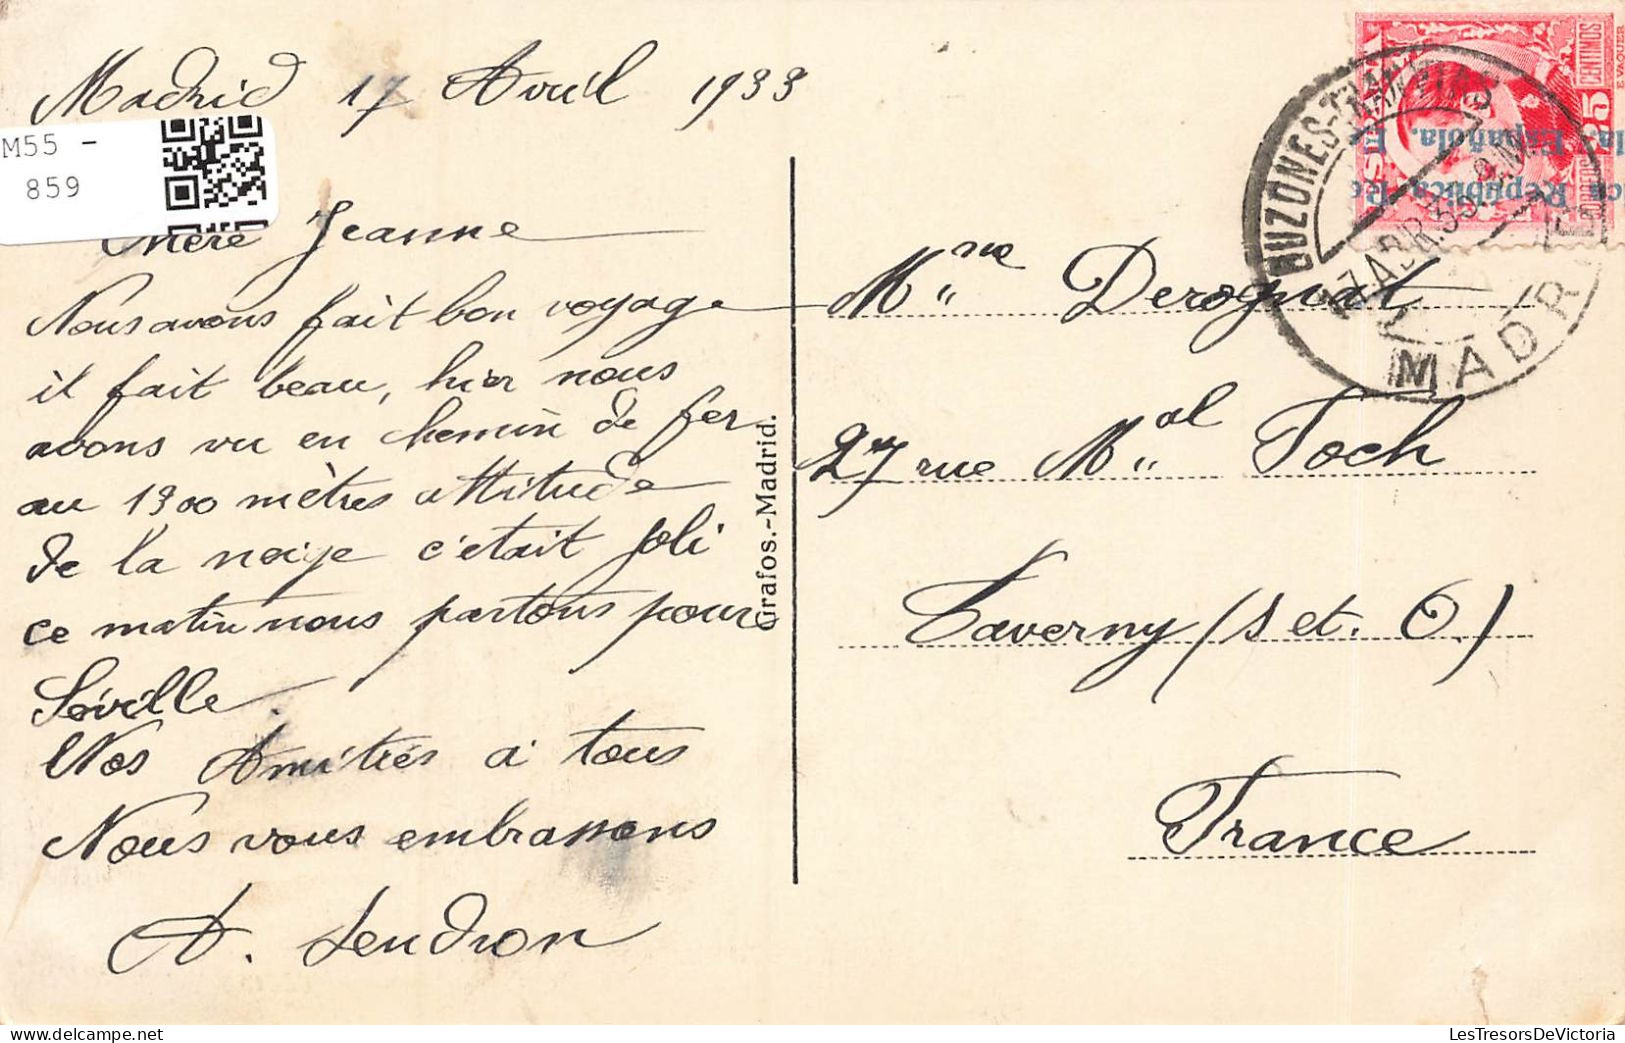 Madrid 17 Avril 1933
M55 -
859
Chère Jeanne
Nous avons fait bon voyage
il fait beau, hier nous
avons vu en chemin de fer
au 1300 mètres attitude
de la neige c'etait joli
ce matin nous partons pour
Séville.
Nos Amitiés à tous
Nous vous embrassons
A.
Grafos.-Madrid.
Mme Derognat
27 rue Mal Foch
Taverny (S et. O.)
France
BUZONES-TRANVIAS
17 ABR.33
MADRID
25
CENTIMOS
E. VAQUER
CORREOS
República
Española.
LesTresorsDeVictoria.com